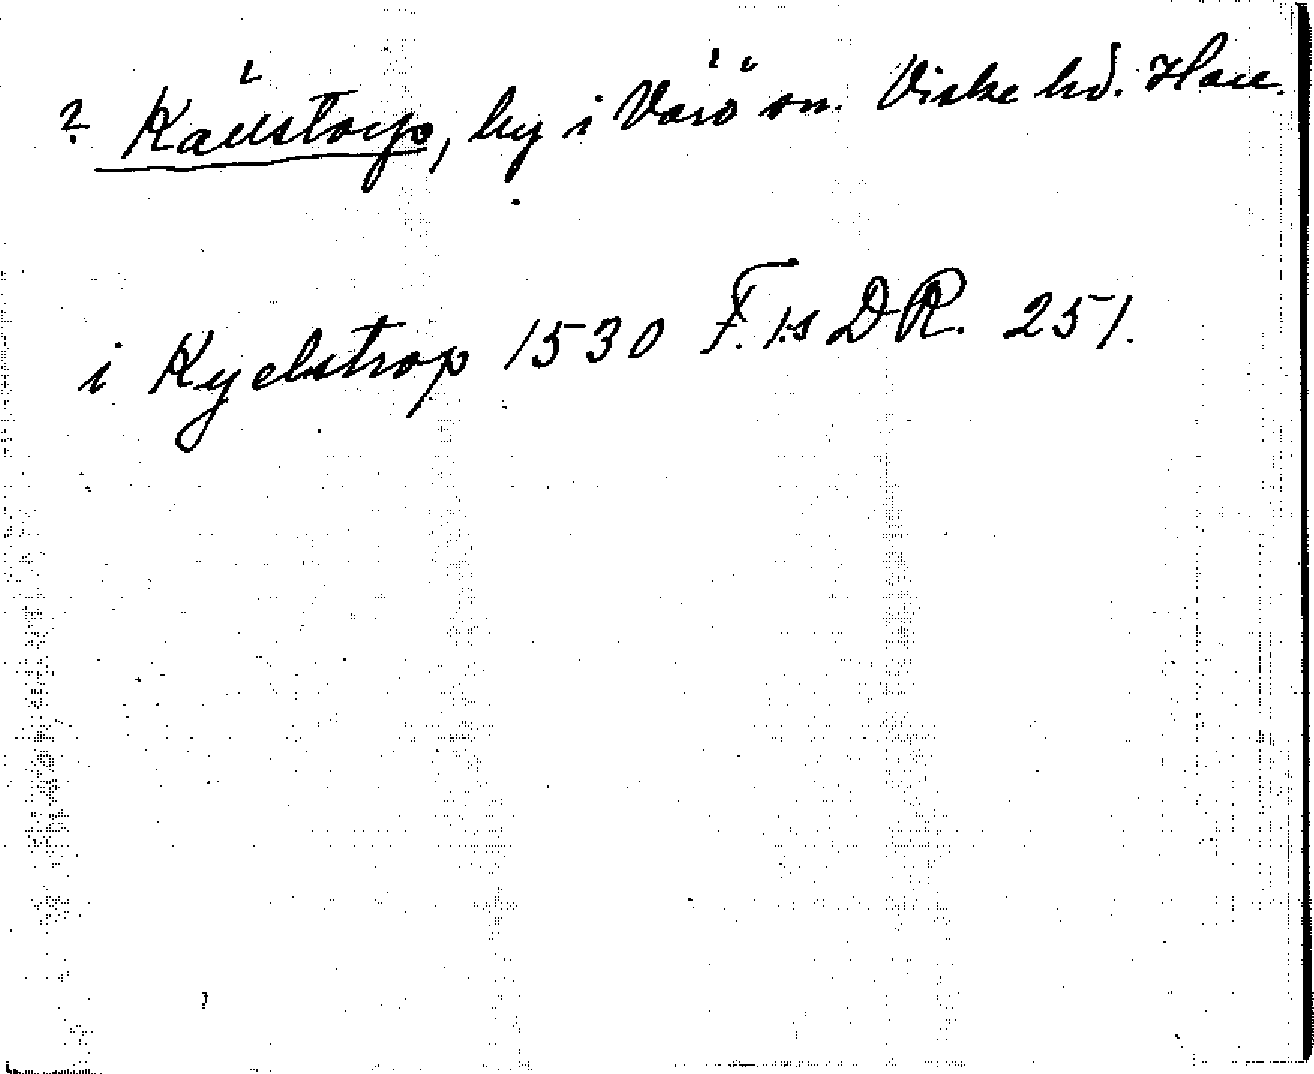 ? Källstorp, by i Värö sn. Viske hd. Hall.
i Kyelstrop 1530 F. I:s DR. 251.